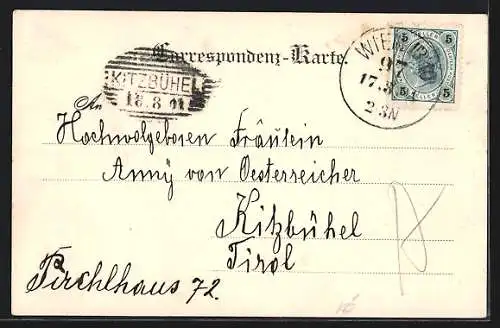 Correspondenz-Karte.
KITZBÜHEL
18.8.01
WIEN
97
17.8
2 3N
5 5
5 5
An
Hochwolgeboren Fräulein
Anny von Oesterreicher
Kitzbühel
Tirol
Pirchlhaus 72.